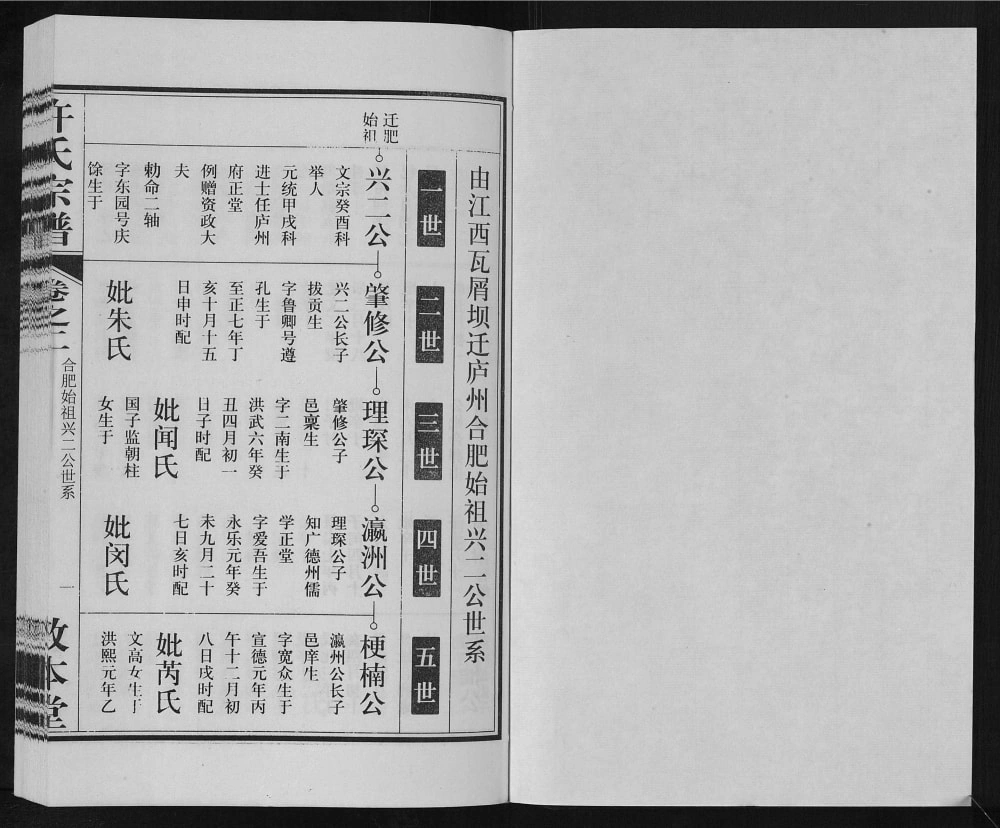 由江西瓦屑坝迁庐州合肥始祖兴二公世系
一世
二世
三世
四世
五世
迁肥
始祖
兴二公
文宗癸酉科
举人
元统甲戌科
进士任庐州
府正堂
例赠资政大
夫
勅命二轴
字东园号庆
馀生于
肇修公
兴二公长子
拔贡生
字鲁卿号遵
孔生于
至正七年丁
亥十月十五
日申时配
妣朱氏
理琛公
肇修公子
邑稟生
字二南生于
洪武六年癸
丑四月初一
日子时配
妣闻氏
国子监朝柱
女生于
瀛洲公
理琛公子
知广德州儒
学正堂
字爱吾生于
永乐元年癸
未九月二十
七日亥时配
妣闵氏
梗楠公
瀛州公长子
邑庠生
字宽众生于
宣德元年丙
午十二月初
八日戌时配
妣芮氏
文高女生于
洪熙元年乙
许氏宗谱
卷之二
合肥始祖兴二公世系
一
敦本堂